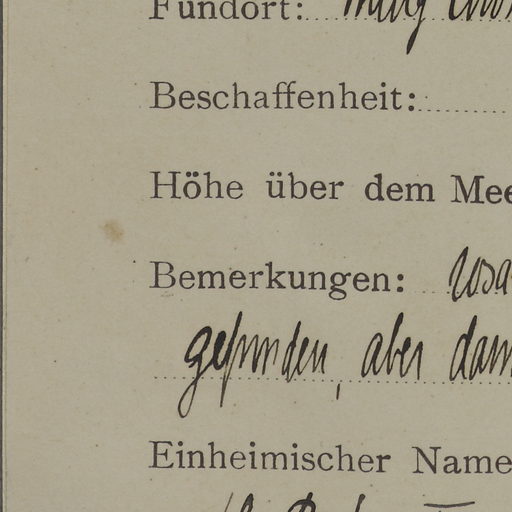 Fundort:
Beschaffenheit:
Höhe über dem Mee
Bemerkungen:
gefunden, aber dam
Einheimischer Name